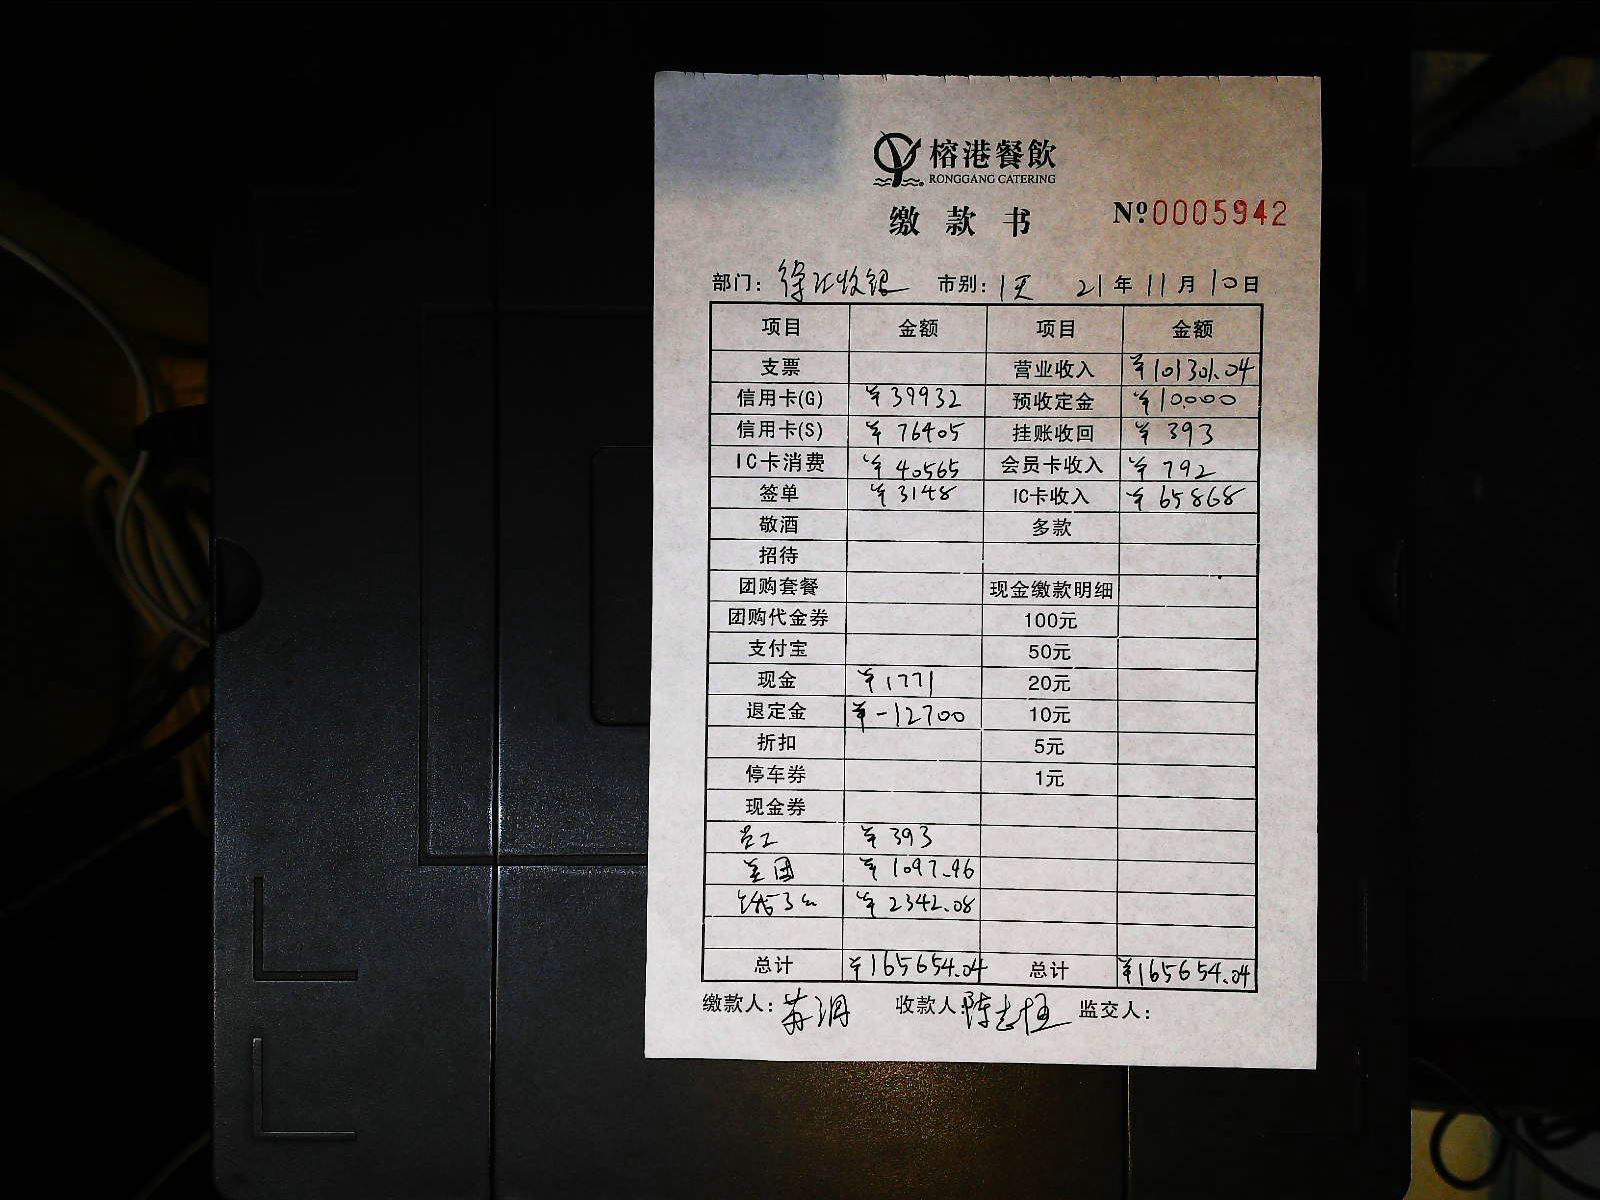 榕港餐飲
RONGGANG CATERING
缴款书 Nº0005942
部门: 徐汇收银 市别: 1天 21年11月10日
项目 金额 项目 金额
支票 营业收入 ¥101301.04
信用卡(G) ¥39932 预收定金 ¥10000
信用卡(S) ¥76405 挂账收回 ¥393
IC卡消费 ¥40565 会员卡收入 ¥792
签单 ¥3148 IC卡收入 ¥65868
敬酒 多款
招待
团购套餐 现金缴款明细
团购代金券 100元
支付宝 50元
现金 ¥1771 20元
退定金 ¥-12700 10元
折扣 5元
停车券 1元
现金券
员工 ¥393
美团 ¥1097.96
饿了么 ¥2342.08
总计 ¥165654.04 总计 ¥165654.04
缴款人: 收款人: 陈志 监交人: